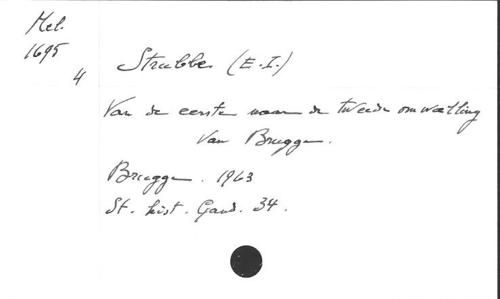 Mel.
1695
4
Strubbe (E.I.)
Van de eerste naar de tweede omwalling
van Brugge.
Brugge. 1963
St. hist. Gand. 34.